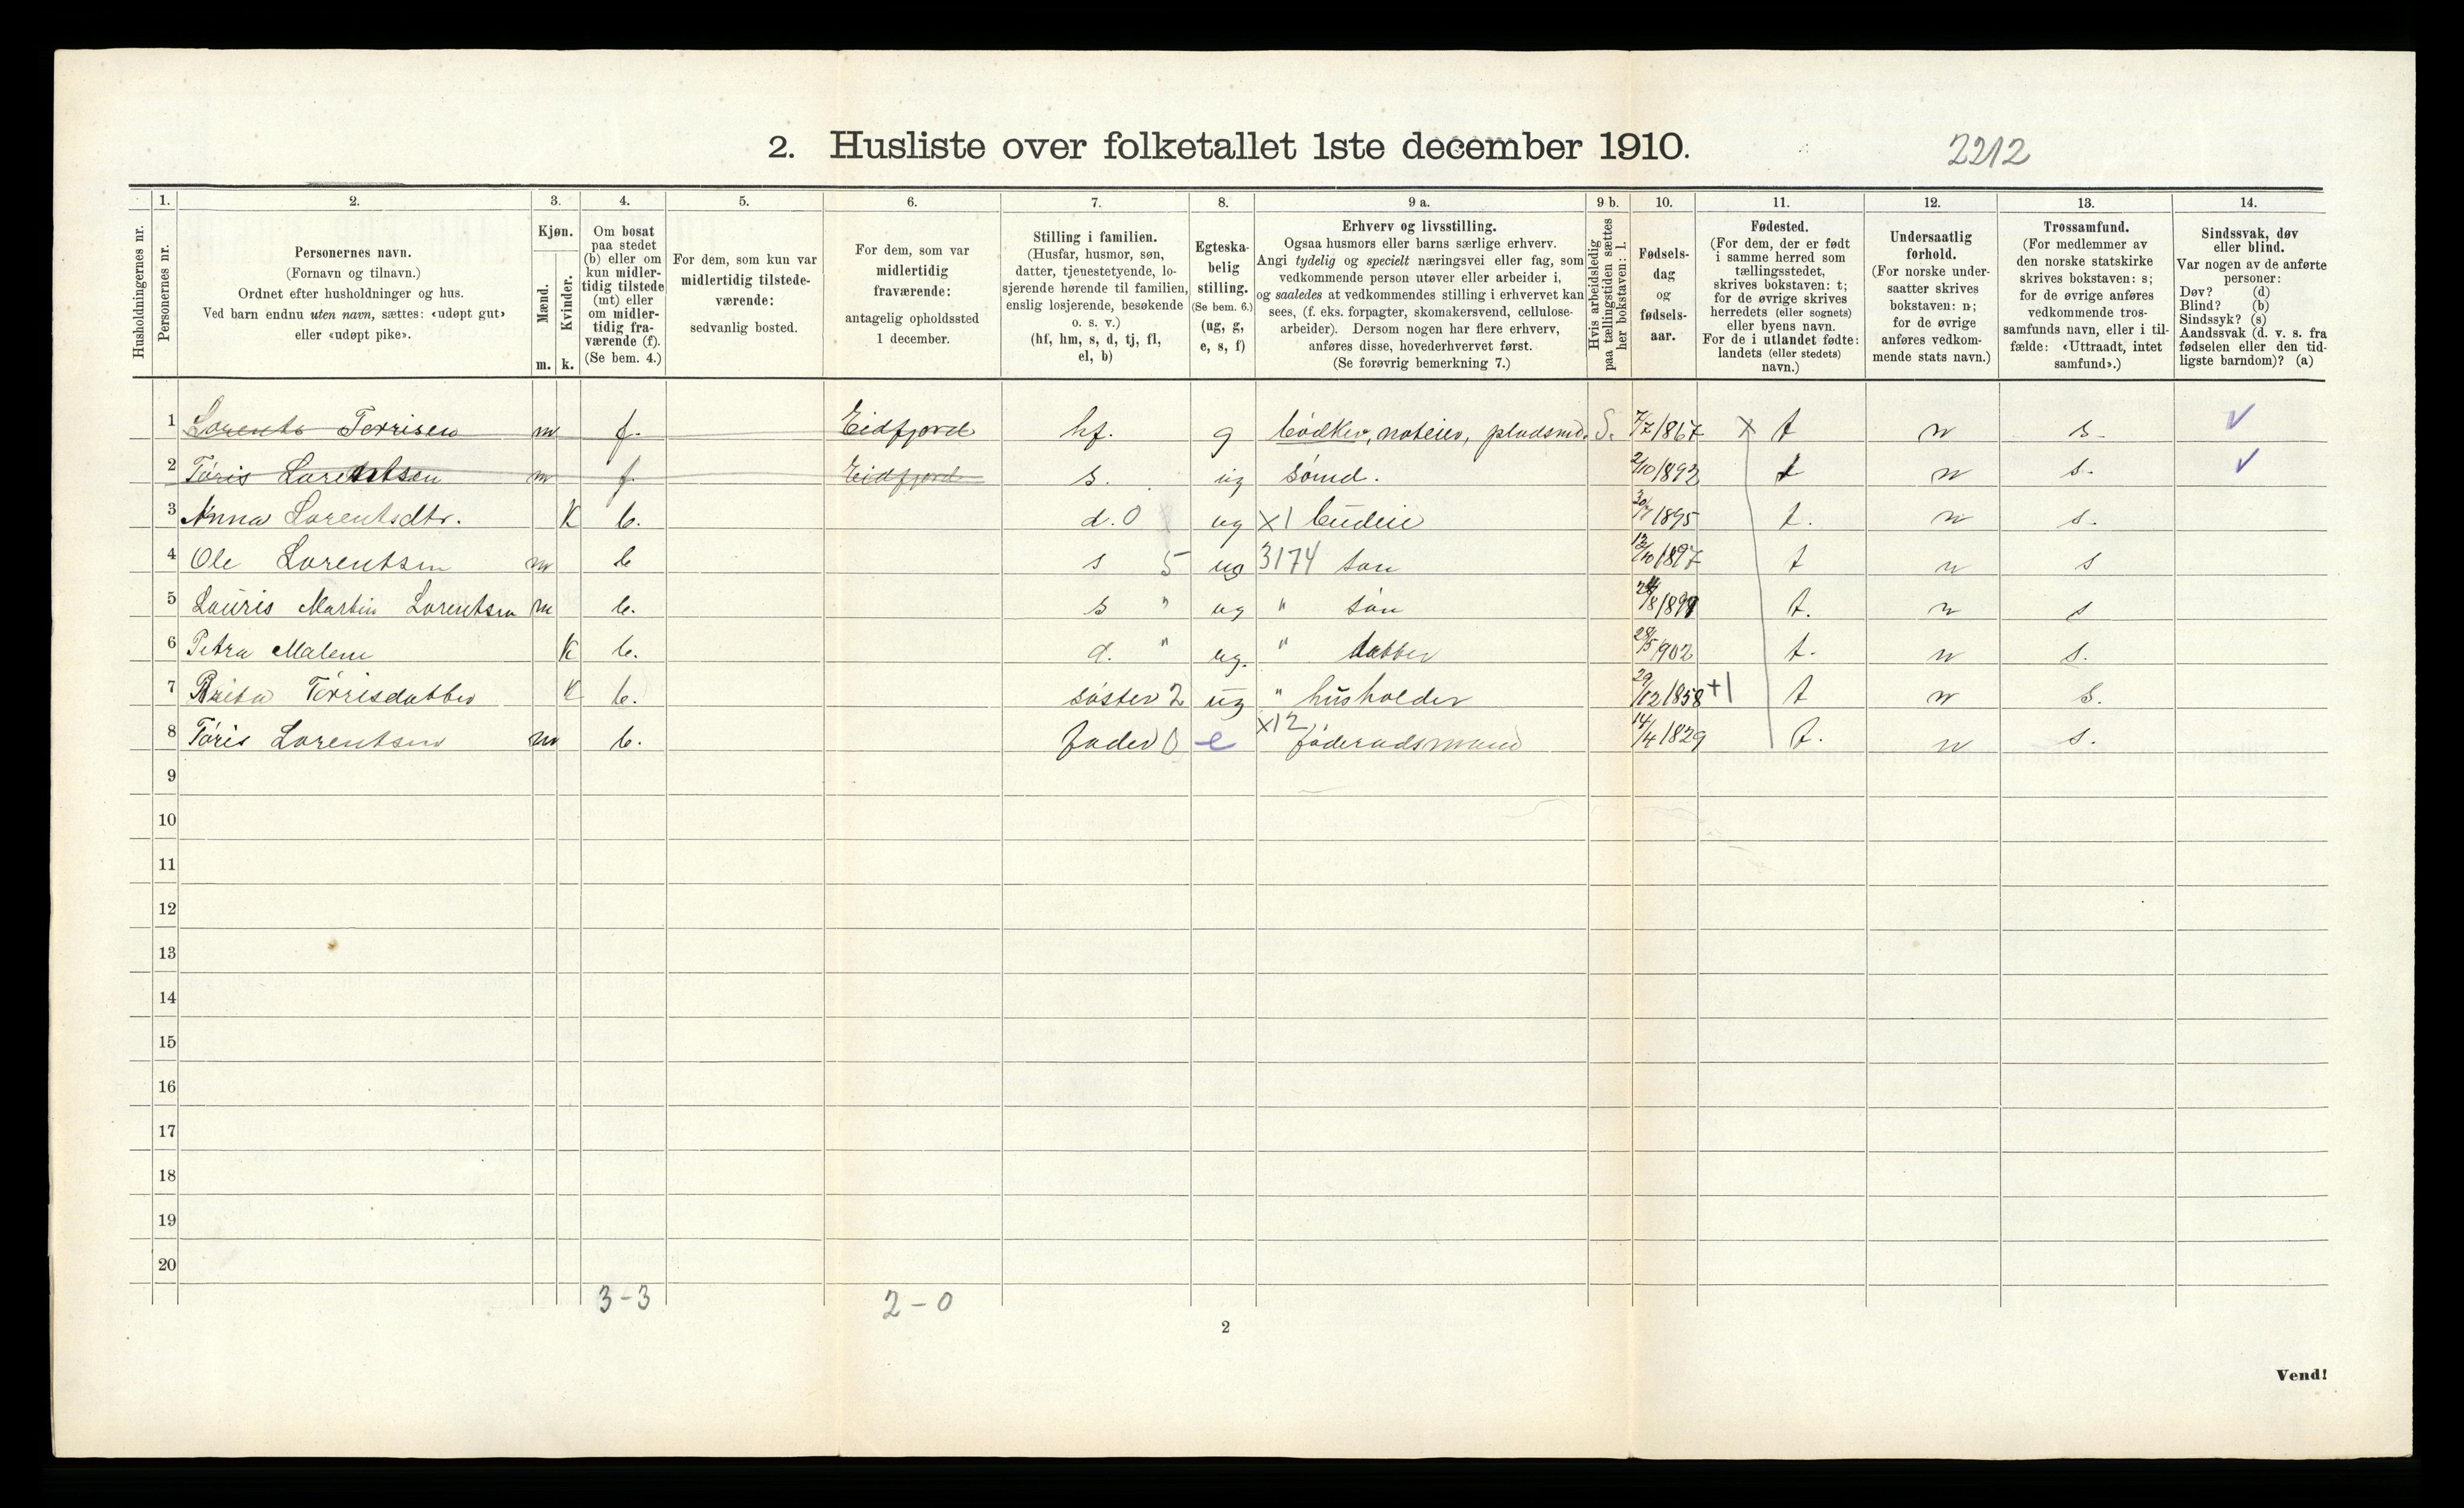 2. Husliste over folketallet 1ste december 1910.
2212
Husholdningernes nr.
1.
Personernes nr.
2.
Personernes navn.
(Fornavn og tilnavn.)
Ordnet efter husholdninger og hus.
Ved barn endnu uten navn, sættes: «udøpt gut»
eller «udøpt pike».
3.
Kjøn.
Mænd.
Kvinder.
m. k.
4.
Om bosat
paa stedet
(b) eller om
kun midler-
tidig tilstede
(mt) eller
om midler-
tidig fra-
værende (f).
(Se bem. 4.)
5.
For dem, som kun var
midlertidig tilstede-
værende:
sedvanlig bosted.
6.
For dem, som var
midlertidig
fraværende:
antagelig opholdssted
1 december.
7.
Stilling i familien.
(Husfar, husmor, søn,
datter, tjenestetyende, lo-
sjerende hørende til familien,
enslig losjerende, besøkende
o. s. v.)
(hf, hm, s, d, tj, fl,
el, b)
8.
Egteska-
belig
stilling.
(Se bem. 6.)
(ug, g,
e, s, f)
9 a.
Erhverv og livsstilling.
Ogsaa husmors eller barns særlige erhverv.
Angi tydelig og specielt næringsvei eller fag, som
vedkommende person utøver eller arbeider i,
og saaledes at vedkommendes stilling i erhvervet kan
sees, (f. eks. forpagter, skomakersvend, cellulose-
arbeider). Dersom nogen har flere erhverv,
anføres disse, hovederhvervet først.
(Se forøvrig bemerkning 7.)
9 b.
Hvis arbeidsledig
paa tællingstiden sættes
her bokstaven: l.
10.
Fødsels-
dag
og
fødsels-
aar.
11.
Fødested.
(For dem, der er født
i samme herred som
tællingsstedet,
skrives bokstaven: t;
for de øvrige skrives
herredets (eller sognets)
eller byens navn.
For de i utlandet fødte:
landets (eller stedets)
navn.)
12.
Undersaatlig
forhold.
(For norske under-
saatter skrives
bokstaven: n;
for de øvrige
anføres vedkom-
mende stats navn.)
13.
Trossamfund.
(For medlemmer av
den norske statskirke
skrives bokstaven: s;
for de øvrige anføres
vedkommende tros-
samfunds navn, eller i til-
fælde: «Uttraadt, intet
samfund».)
14.
Sindssvak, døv
eller blind.
Var nogen av de anførte
personer:
Døv? (d)
Blind? (b)
Sindssyk? (s)
Aandssvak (d. v. s. fra
fødselen eller den tid-
ligste barndom)? (a)
1 Lorents Terrisen m f. Eidfjord hf. g bödker, noteier, pladsmd. S. 7/7 1867 x t n s. ✓
2 Töris Lorentsen m f. Eidfjord s. ug sömd. 2/10 1892 t n s. ✓
3 Anna Lorentsdtr. K b. d. 0 ug x1 budeie 30/7 1895 t. n s.
4 Ole Lorentsen m b s 5 ug 3174 sön 12/10 1897 t n s
5 Lauris Martin Lorentsen m b. s " ug " sön /8 1899 t. n s
6 Petra Malene K b. d. " ug. " datter 28/5 902 t. n s.
7 Brita Törrisdatter K b. söster 2 ug " husholder 29/12 1858 +1 t n s.
8 Töris Lorentsen m b. fader 0 e x12 föderadsmand 14/4 1829 t. n s.
9
10
11
12
13
14
15
16
17
18
19
20
3-3 2-0
2
Vend!